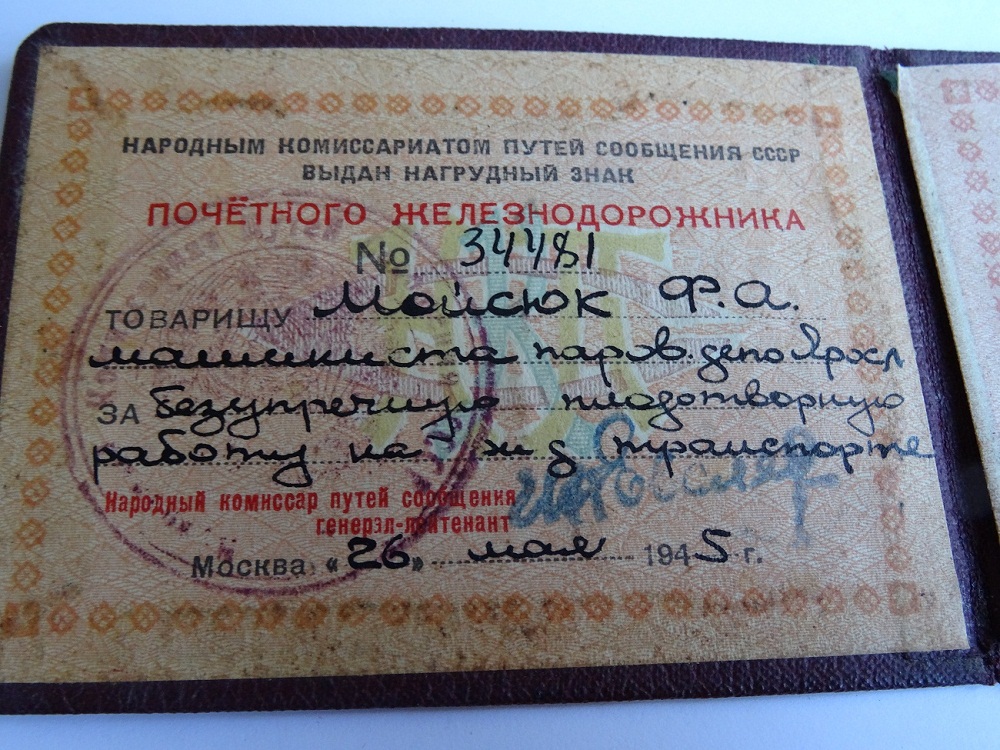 НАРОДНЫМ КОМИССАРИАТОМ ПУТЕЙ СООБЩЕНИЯ СССР
ВЫДАН НАГРУДНЫЙ ЗНАК
ПОЧЁТНОГО ЖЕЛЕЗНОДОРОЖНИКА
№ 34481
ТОВАРИЩУ Мойсюк Ф.А.
машиниста паров. депо Яросл
ЗА безупречную плодотворную
работу на ж д транспорте
Народный комиссар путей сообщения
генерал-лейтенант
Москва «26» мая 1945 г.